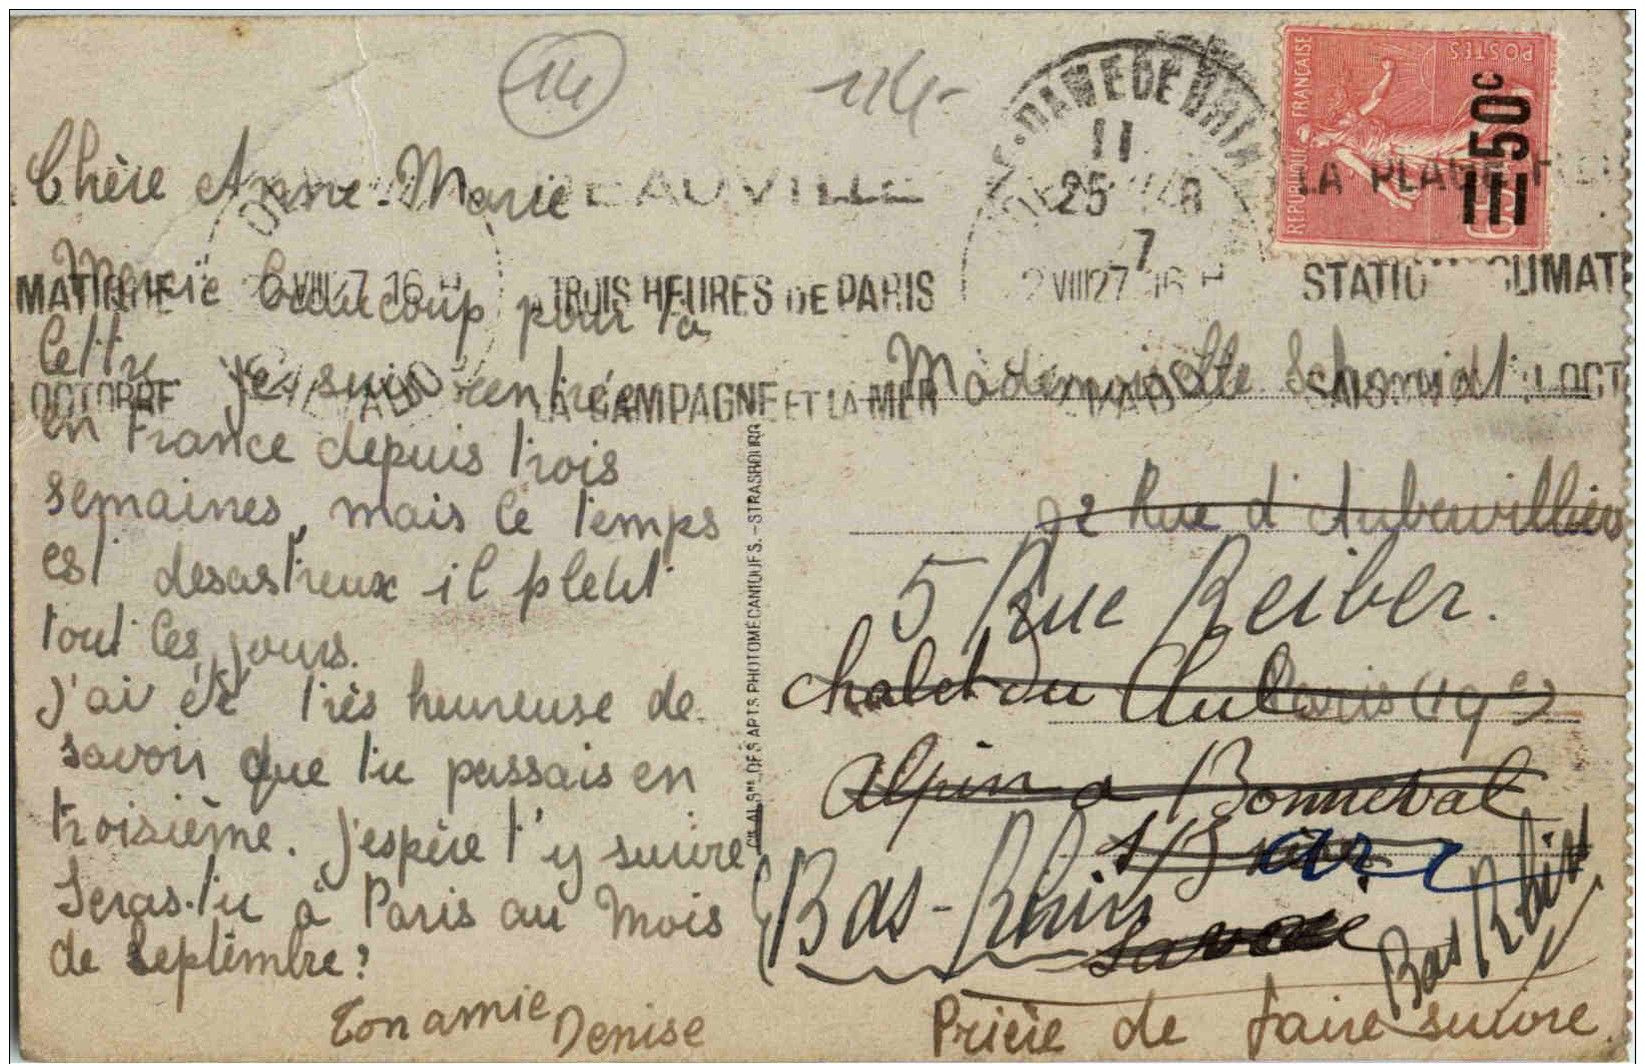 14
114-
Chère Anne-Marie
Merci beaucoup pour ta
lettre je suis rentrée
en France depuis trois
semaines, mais le temps
est desastreux il pleut
tout les jours.
J'ai été très heureuse de
savoir que tu passais en
troisième. J'espère t'y suivre
Seras-tu à Paris au mois
de Septembre?
Ton amie Denise
DEAUVILLE
TROIS HEURES DE PARIS
LA CAMPAGNE ET LA MER
OCTOBRE
6 VIII 27 16 H
DAME DE BRI
11
25 8
7
2 VIII 27 16 H
LA PLAGE
STATIO CLIMAT
OCT
REPUBLIQUE FRANÇAISE
POSTES
=50c
65c
CIE ALSNE DES ARTS PHOTOMÉCANIQUES.-STRASBOURG
Mademoiselle Schmidt
92 Rue d'Aubervilliers
Paris (19e)
5 Rue Reiber.
Chalet du Club
Alpin a Bonneval
s/
Barr
Bas-Rhin
Savoie
Bas Rhin
Prière de faire suivre